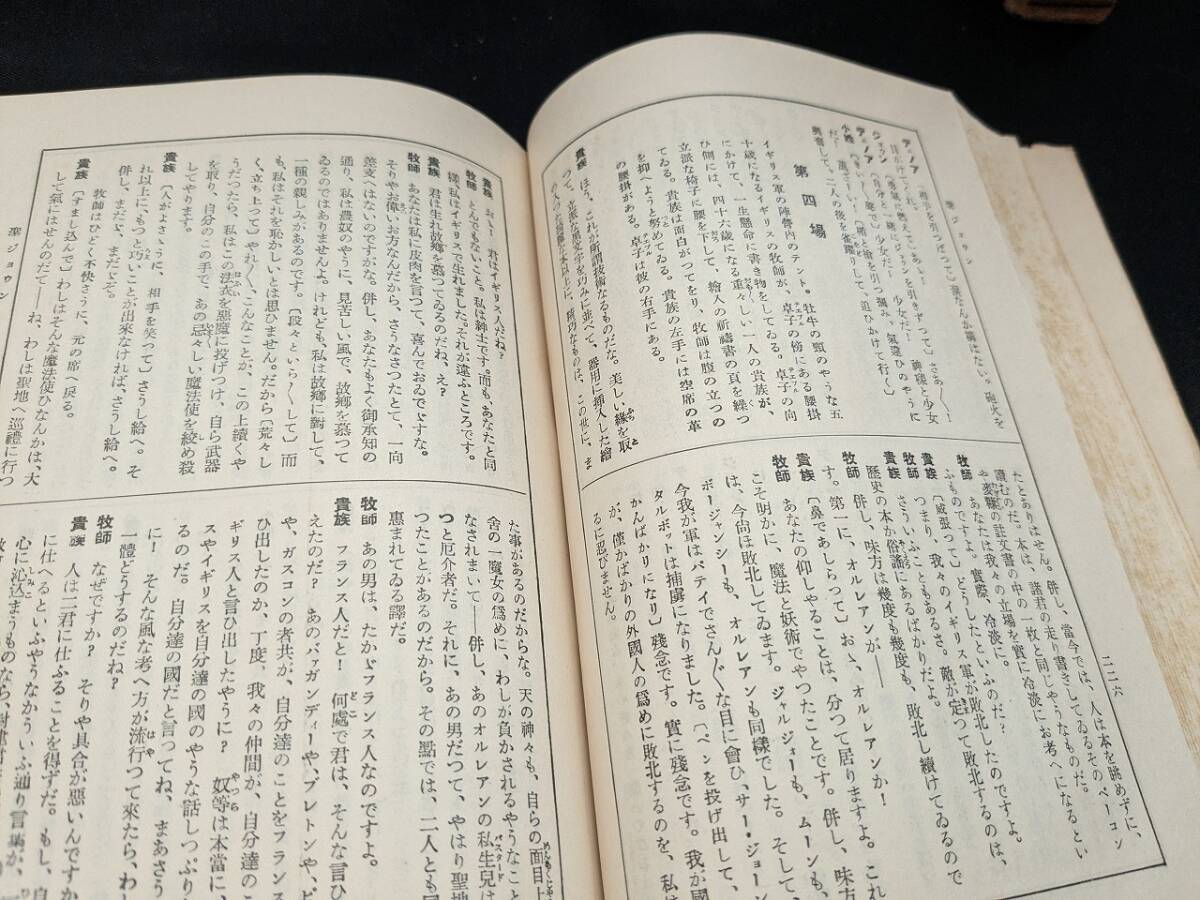 二二六
聖ジョウン
第四場
イギリス軍の陣營内のテント。牡牛の頸のやうな五
十歳になるイギリスの牧師が、卓子の傍にある腰掛
にかけて、一生懸命に書き物をしてゐる。卓子の向
ひ側には、四十六歳になる重々しい一人の貴族が、
立派な椅子に腰を下して、繪入の祈禱書の頁を繰つ
てゐる。貴族は面白がつてをり、牧師は腹の立つの
を抑へようと努めてゐる。貴族の左手には空席の革
の腰掛がある。卓子は彼の右手にある。
貴族 ほう、これが所謂技術なるものだな。美しい縁を取
つて、立派な黒文字を巧みに並べて、器用に挿入した繪
たとありはせん。併し、當今では、人は本を眺めずに、
讀むのだ。本は、諸君の走り書きしてゐるそのベーコン
や麥糠の註文書の中の一枚と同じやうなものだ。
牧師 あなたは我々の立場を實に冷淡にお考へになるとい
ふものですよ。實際、冷淡に。
貴族 〔威張つて〕どうしたといふのだ?
牧師 つまり、我々のイギリス軍が敗北したのですよ。
貴族 さういふこともあるさ。敵が定つて敗北するのは、
歴史の本か俗謠にあるばかりだよ。
牧師 併し、味方は幾度も幾度も、敗北し續けてゐるので
す。第一に、オルレアンが――
貴族 〔鼻であしらつて〕おゝ、オルレアンか!
牧師 あなたの仰しやることは、分つて居りますよ。これ
こそ明かに、魔法と妖術でやつたことです。併し、味方
は、今尙ほ敗北してゐます。ジャルジォーも、ムーンも、
ボージャンシーも、オルレアンも同樣でした。そして、
今我が軍はパテイでさん〴〵な目に會ひ、サー・ジョーン・
タルボットは捕虜になりました。〔ペンを投げ出して、
かんばかりになり〕殘念です。實に殘念です。我が國
が、僅かばかりの外國人の爲めに敗北するのを、私は
るに忍びません。
貴族 おゝ! 君はイギリス人だね?
牧師 とんでもないこと。私は紳士です。而も、あなたと同
樣、私はイギリスで生れました。それが違ふところです。
貴族 君は生れ故鄕を慕つてゐるのだね、え?
牧師 あなたは私に皮肉を言つて、喜んでおゐでですな。
そりやお偉いお方なんだから、さうなさつたとて、一向
差支へはないのですがね。併し、あなたもよく御承知の
通り、私は農奴のやうに、見苦しい風で、故鄕を慕つて
ゐるのではありませんよ。けれども、私は故鄕に對して、
一種の親しみがあるのです。〔段々といら〳〵して〕而
も、私はそれを恥かしいとは思ひません。だから〔荒々し
く、立ち上つて〕やれ〳〵、こんなことが、この上續くや
うだつたら、私はこの法衣を惡魔に投げつけ、自ら武器
を取り、自分のこの手で、あの忌々しい魔法使を絞め殺
してやります。
貴族 〔人がよさゝうに、相手を笑つて〕さうし給へ。そ
れ以上に、もつと巧いことが出來なければ、さうし給へ。
併し、まだよ、まだだぞ。
牧師はひどく不快さうに、元の席へ戻る。
貴族 〔すまし込んで〕わしはそんな魔法使ひなんかは、大
して氣にはせんのだて――ね、わしは聖地へ巡禮に行つ
た事があるのだからな。天の神々も、自らの面目上
舎の一魔女の爲めに、わしが負かされるやうなこと
なされまいて――併し、あのオルレアンの私生兒は
つと厄介者だ。それに、あの男だつて、やはり聖地
つたことがあるのだから。その點では、二人とも同
惠まれてゐる譯だ。
牧師 あの男は、たかゞフランス人なのですよ。
貴族 フランス人だと! 何處で君は、そんな言ひ
えたのだ? あのバァガンディーや、ブレトンや、ピ
や、ガスコンの者共が、自分達のことをフランス
ひ出したのか、丁度、我々の仲間が、自分達のこ
ギリス人と言ひ出したやうに? 奴等は本當に、
スやイギリスを自分達の國のやうな話しつぷり
るのだ。自分達の國だと言つてね、まあさう
に! そんな風な考へ方が流行つて來たら、わし
一體どうするのだね?
牧師 なぜですか? そりや具合が惡いんですか
貴族 人は二君に仕ふることを得ずだ。もし、自
に仕へるといふやうなかういふ通り言葉が、一
心に沁込まうものなら、